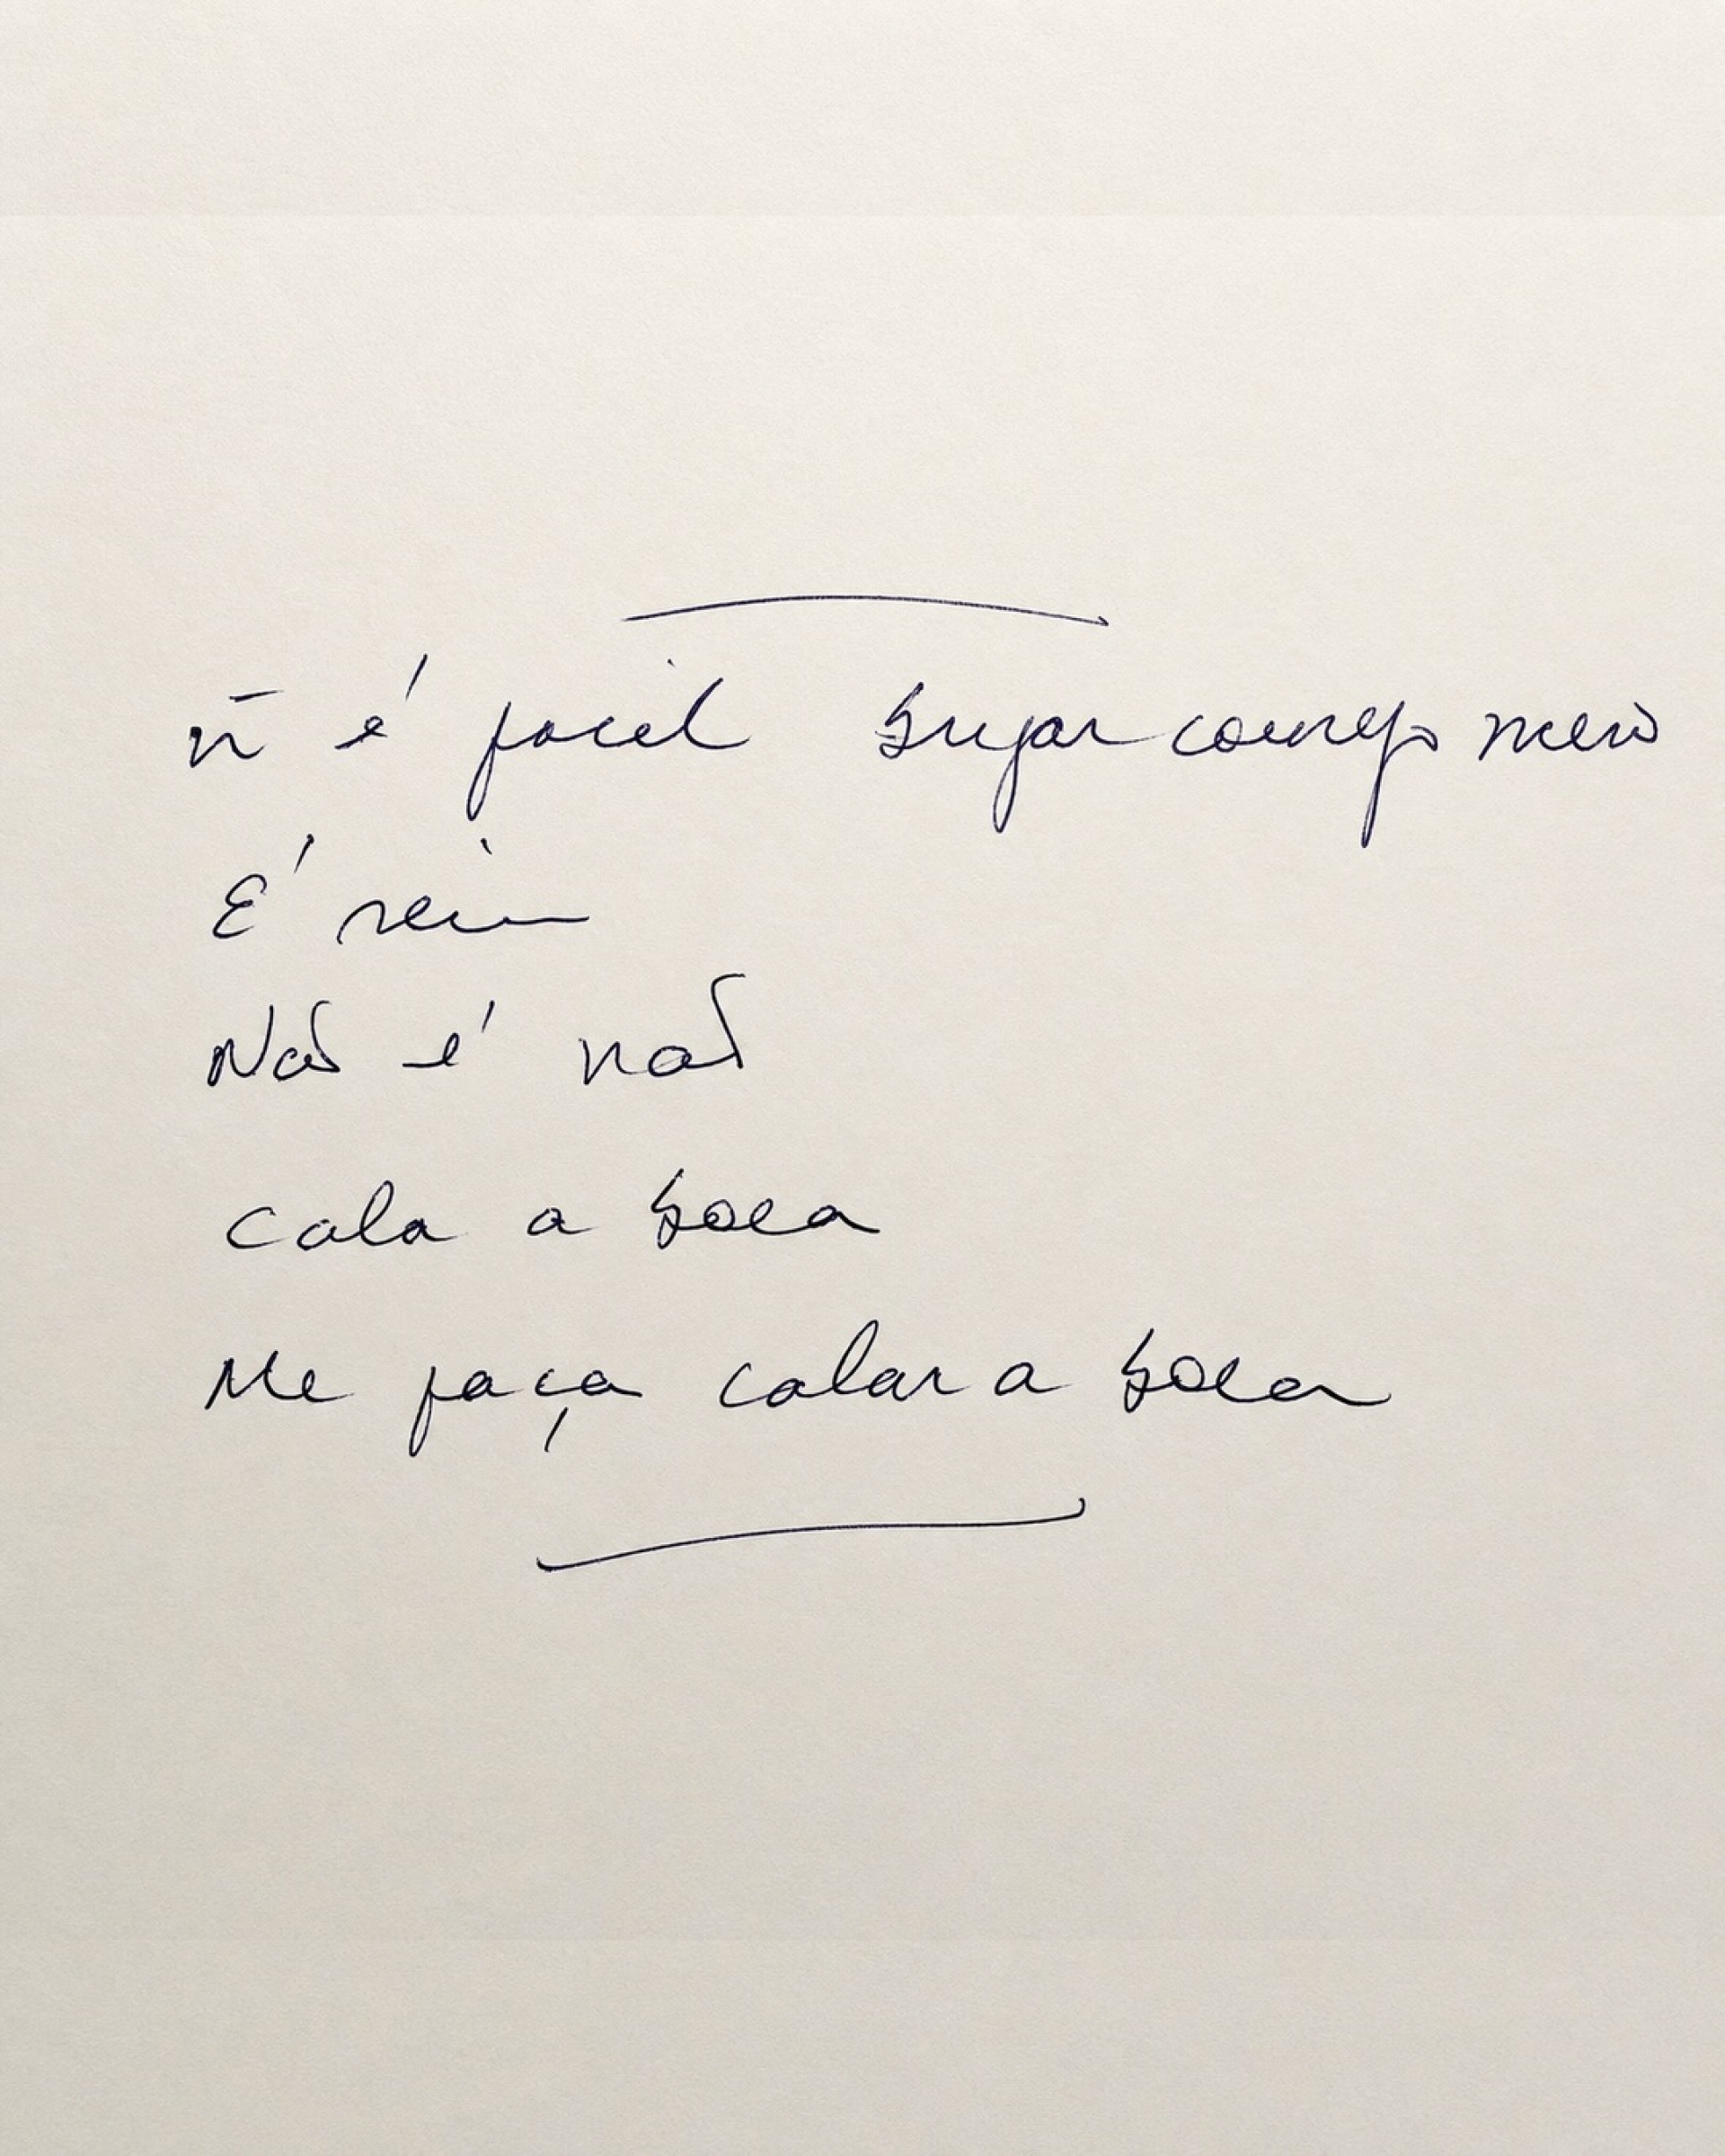 ñ é facil brigar comigo
É sim
Não é não
Cala a boca
Me faça calar a boca